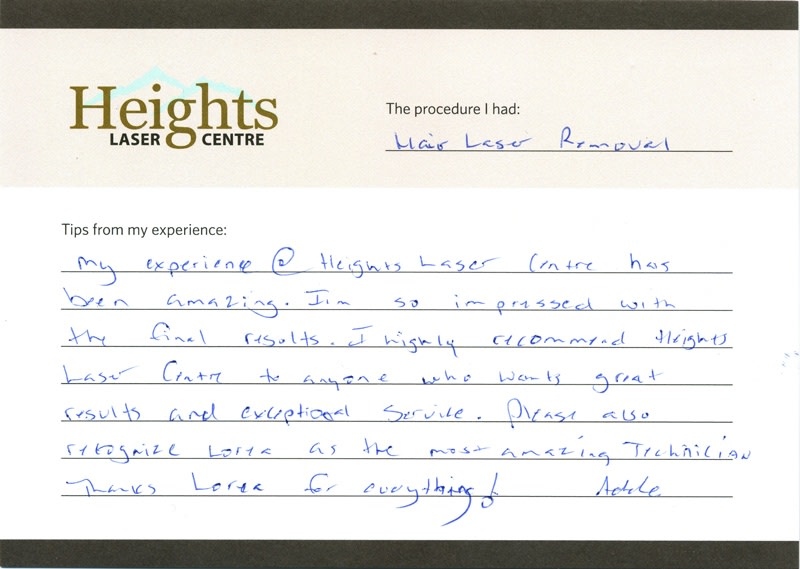 Heights
LASER CENTRE
The procedure I had:
Hair Laser Removal
Tips from my experience:
My experience @ Heights Laser Centre has
been amazing. I'm so impressed with
the final results. I highly recommend Heights
Laser Centre to anyone who wants great
results and exceptional service. Please also
recognize as the most amazing Technician
Thanks for everything!